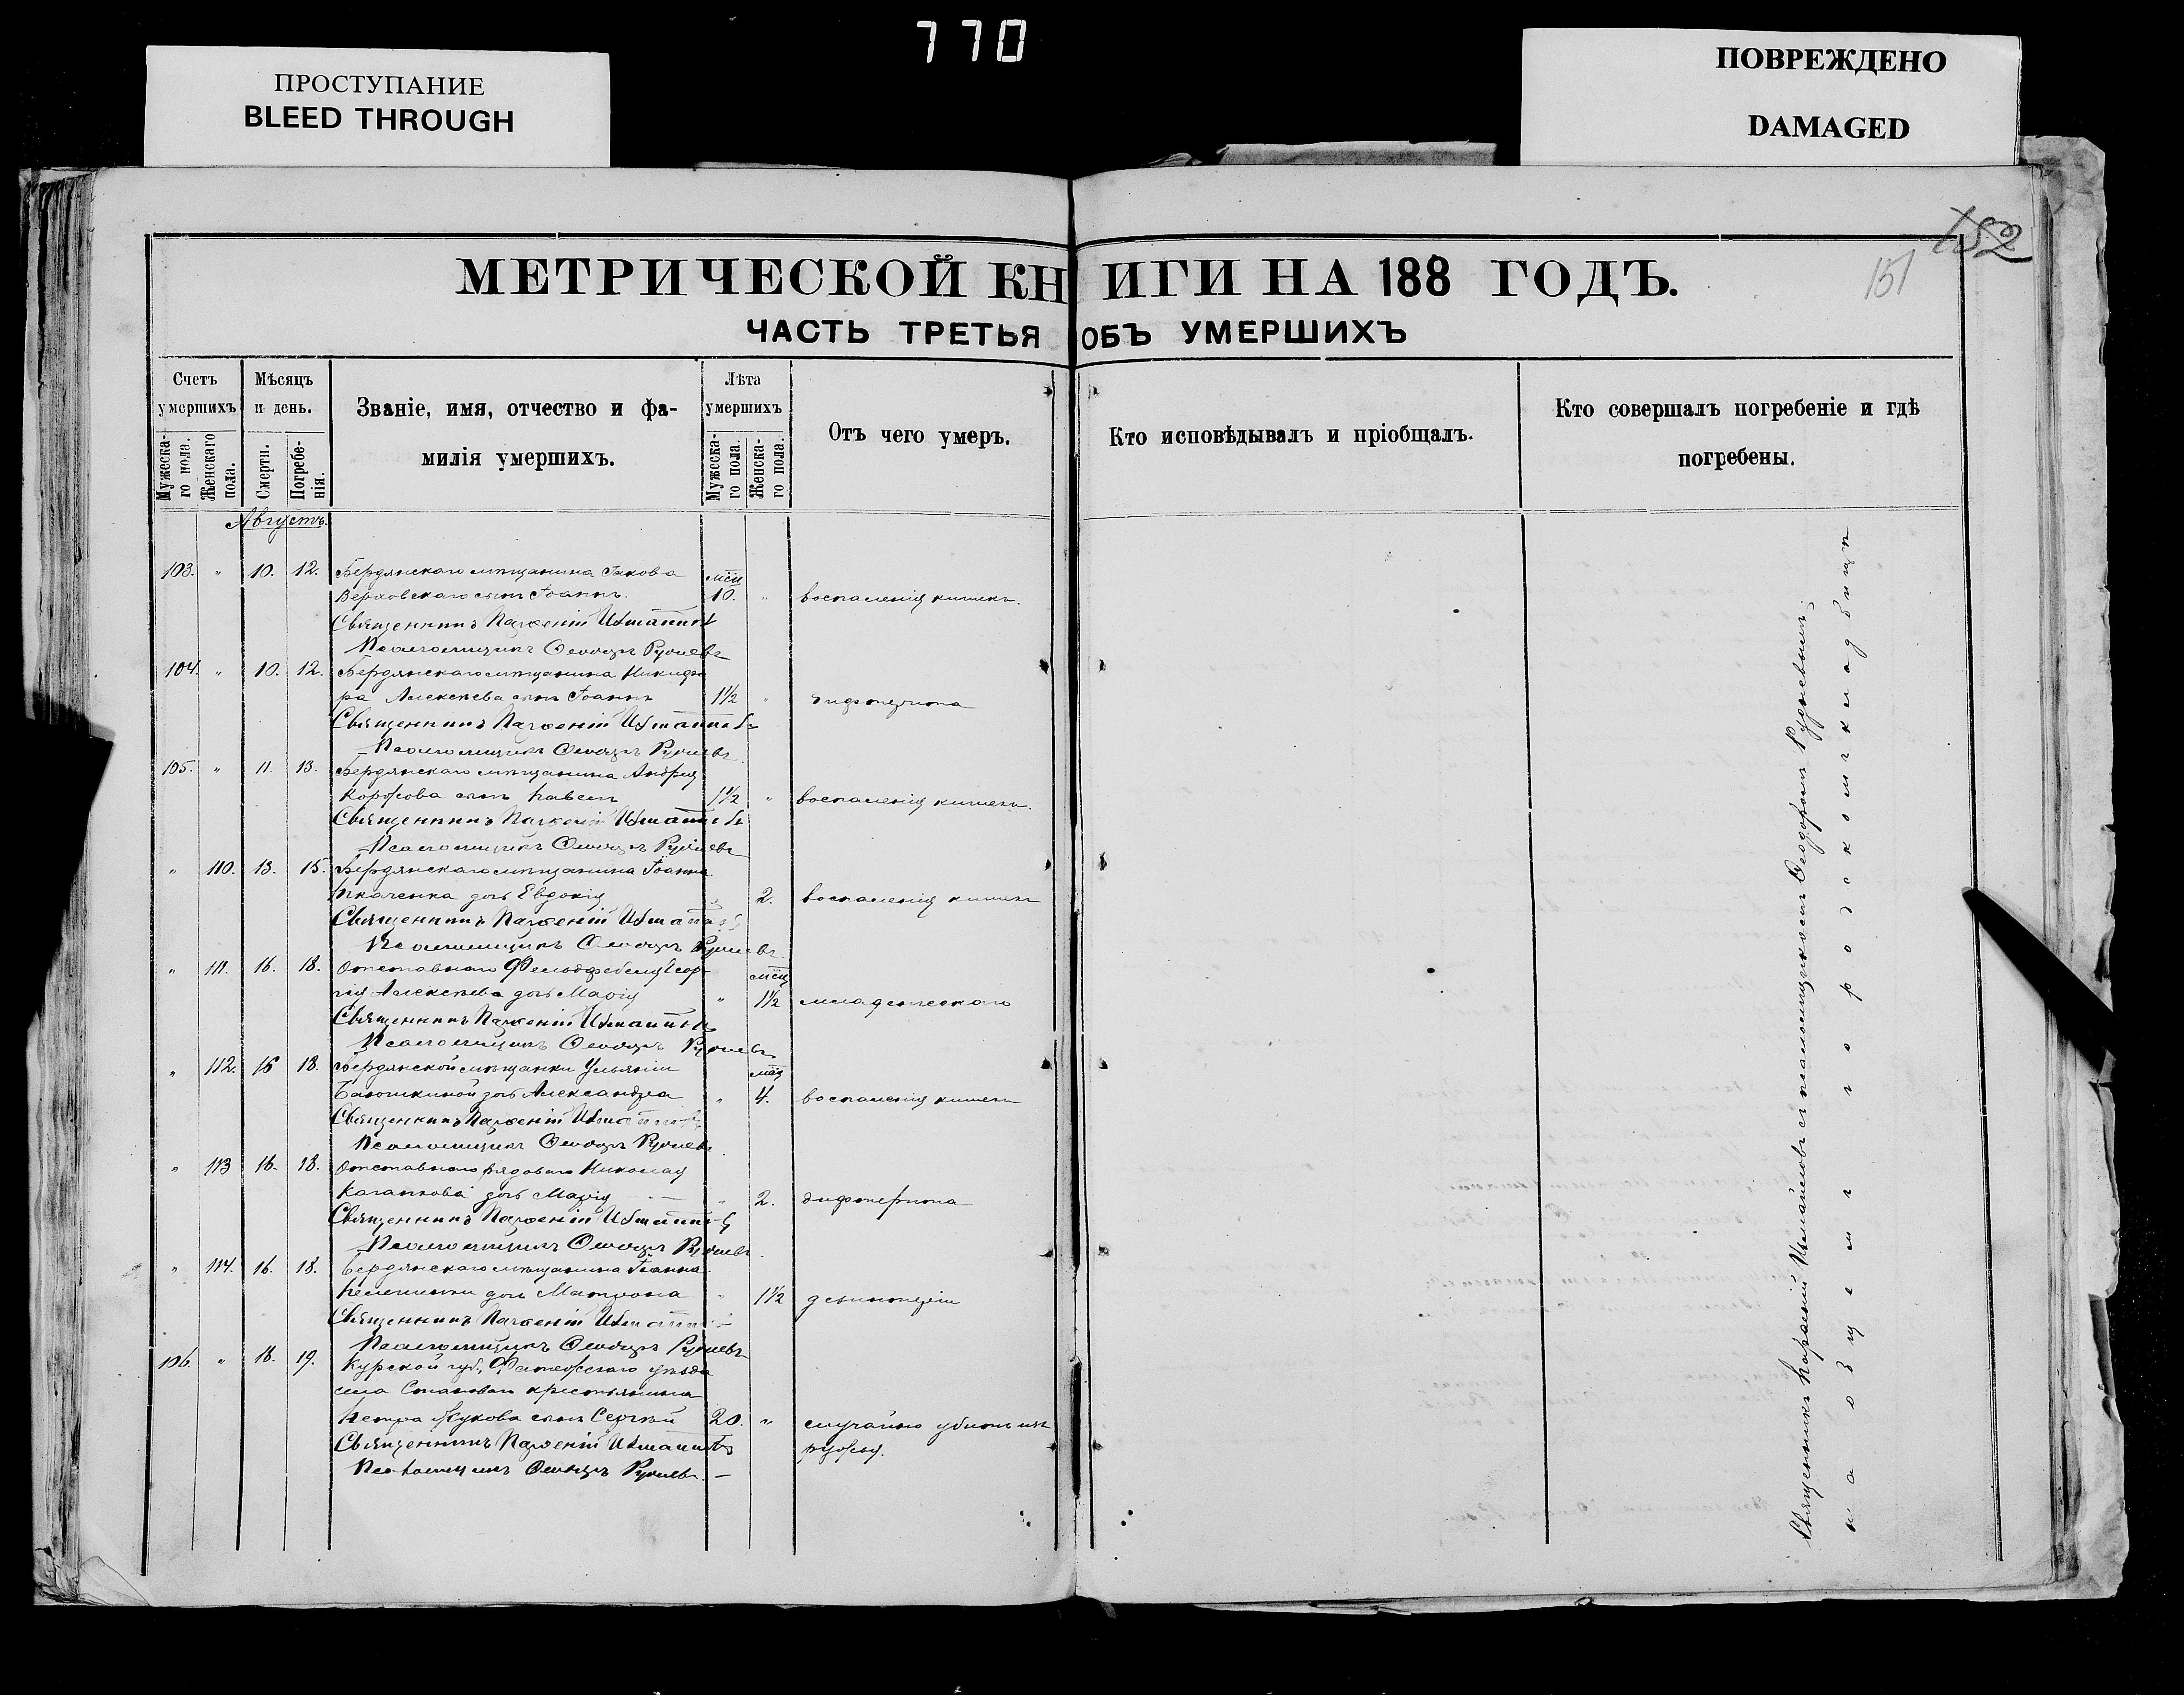 770
ПРОСТУПАНИЕ
BLEED THROUGH
ПОВРЕЖДЕНО
DAMAGED
152
151
МЕТРИЧЕСКОЙ КНИГИ НА 188 ГОДЪ.
ЧАСТЬ ТРЕТЬЯ ОБЪ УМЕРШИХЪ
Счетъ умершихъ
Мужеска-го пола.
Женскаго пола.
Мѣсяцъ и день.
Смерти.
Погребе-нія.
Званіе, имя, отчество и фа-
милія умершихъ.
Лѣта умершихъ
Мужеска-го пола.
Женска-го пола.
Отъ чего умеръ.
Кто исповѣдывалъ и пріобщалъ.
Кто совершалъ погребеніе и гдѣ
погребены.
Августъ.
103. " 10. 12. Бердянскаго мѣщанина Іакова мѣц
Верховскаго сынъ Іоаннъ. 10. " воспаленія кишекъ.
Священникъ
Псаломщикъ Ѳеодоръ Рудневъ
104. " 10. 12. Бердянскаго мѣщанина Никифо
ра Алексѣева сынъ Іоаннъ 1½ " дифтерита
Священникъ
Псаломщикъ Ѳеодоръ Рудневъ
105. " 11. 13. Бердянскаго мѣщанина Андрея
сынъ Павелъ 1½ " воспаленія кишекъ.
Священникъ
Псаломщикъ Ѳеодоръ Рудневъ
" 110. 13. 15. Бердянскаго мѣщанина Іоанна
Ткаченка дочь Евдокія " 2. воспаленія кишекъ
Священникъ
Псаломщикъ Ѳеодоръ Рудневъ
" 111. 16. 18. Отставнаго Фельдфебеля Геор- мѣц
гія Алексѣева дочь Марія " 1½ младенческаго
Священникъ
Псаломщикъ Ѳеодоръ Рудневъ
" 112. 16 18. Бердянской мѣщанки Ульяніи мѣц
дочь Александра " 4. воспаленія кишекъ
Священникъ
Псаломщикъ Ѳеодоръ Рудневъ
" 113 16. 18. Отставнаго рядоваго Николая
дочь Марія " 2. дифтерита
Священникъ
Псаломщикъ Ѳеодоръ Рудневъ
" 114. 16. 18. Бердянскаго мѣщанина Іоанна
дочь Матрона " 1½ дезинтеріи
Священникъ
Псаломщикъ Ѳеодоръ Рудневъ
106. " 18. 19. Курской губ., Фатежскаго уѣзда
села крестьянина
Петра Жукова сынъ Сергѣй 20. " случайно убитъ изъ
Священникъ ружья.
Псаломщикъ Ѳеодоръ Рудневъ.
Священникъ съ псаломщикомъ Ѳеодоромъ Рудневымъ
на общемъ городскомъ кладбищѣ